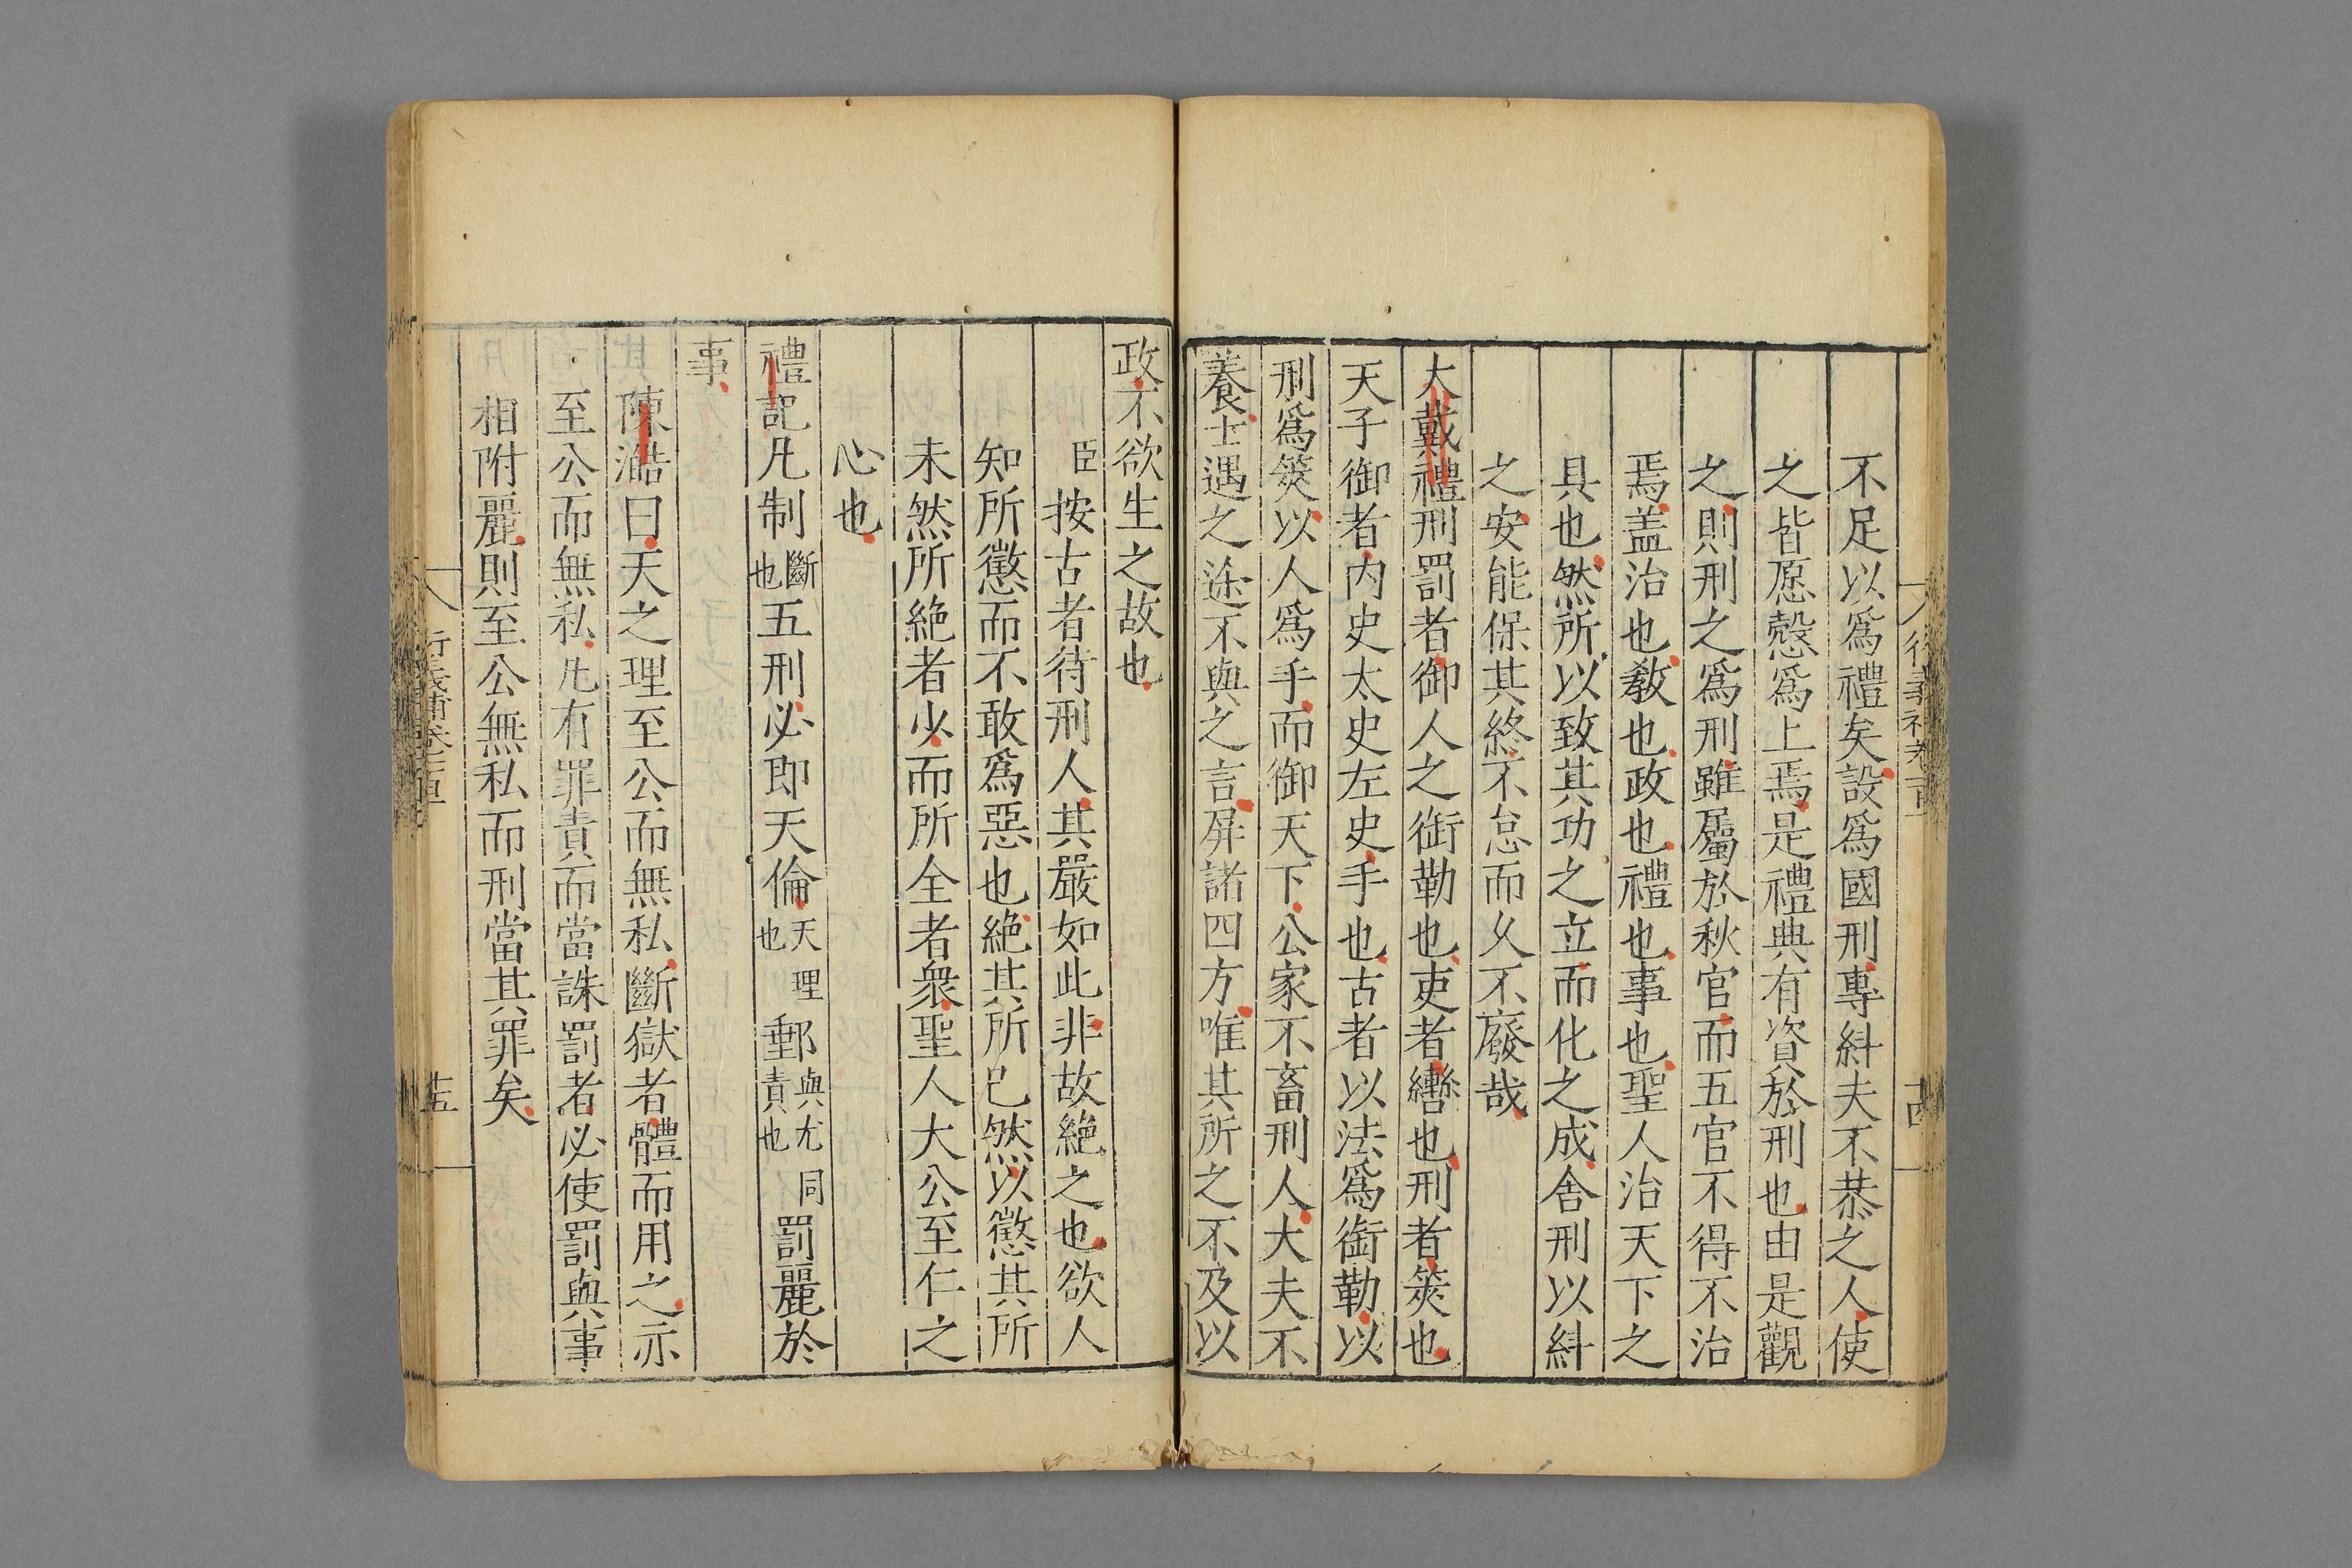 不足以爲禮矣設爲國刑專糾夫不恭之人使
之皆愿慤爲上焉是禮典有資於刑也由是觀
之則刑之爲刑雖屬於秋官而五官不得不治
焉盖治也教也政也禮也事也聖人治天下之
具也然所以致其功之立而化之成舍刑以糾
之安能保其終不怠而乆不廢哉
大戴禮刑罰者御人之銜勒也吏者轡也刑者筴也
天子御者内史太史左史手也古者以法爲銜勒以
刑爲筴以人爲手而御天下公家不畜刑人大夫不
養士遇之途不與之言屏諸四方唯其所之不及以
政不欲生之故也
臣按古者待刑人其嚴如此非故絶之也欲人
知所懲而不敢爲惡也絶其所已然以懲其所
未然所絶者少而所全者衆聖人大公至仁之
心也
禮記凡制斷也五刑必即天倫天理也郵與尤同責也罰麗於
事
陳澔曰天之理至公而無私斷獄者體而用之亦
至公而無私凡有罪責而當誅罰者必使罰與事
相附麗則至公無私而刑當其罪矣
十五